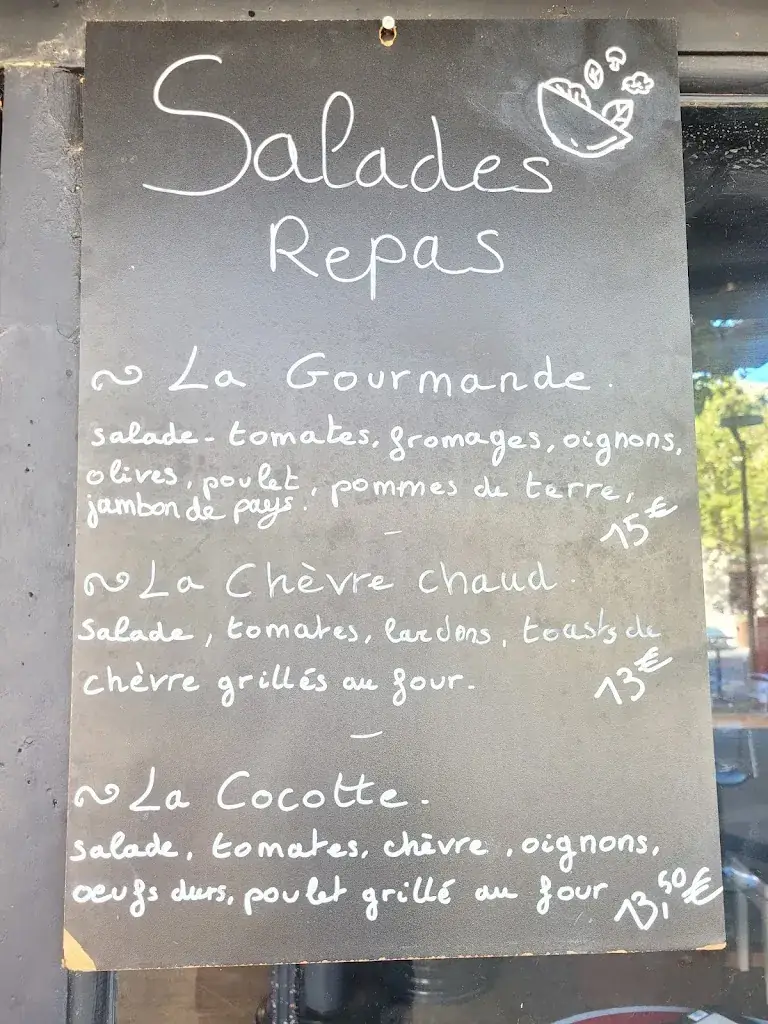 Salades
Repas
~ La Gourmande.
salade - tomates, fromages, oignons,
olives, poulet, pommes de terre,
jambon de pays.
15€
~ La Chèvre chaud.
Salade, tomates, lardons, toasts de
chèvre grillés au four.
13€
~ La Cocotte.
salade, tomates, chèvre, oignons,
oeufs durs, poulet grillé au four
13,50€